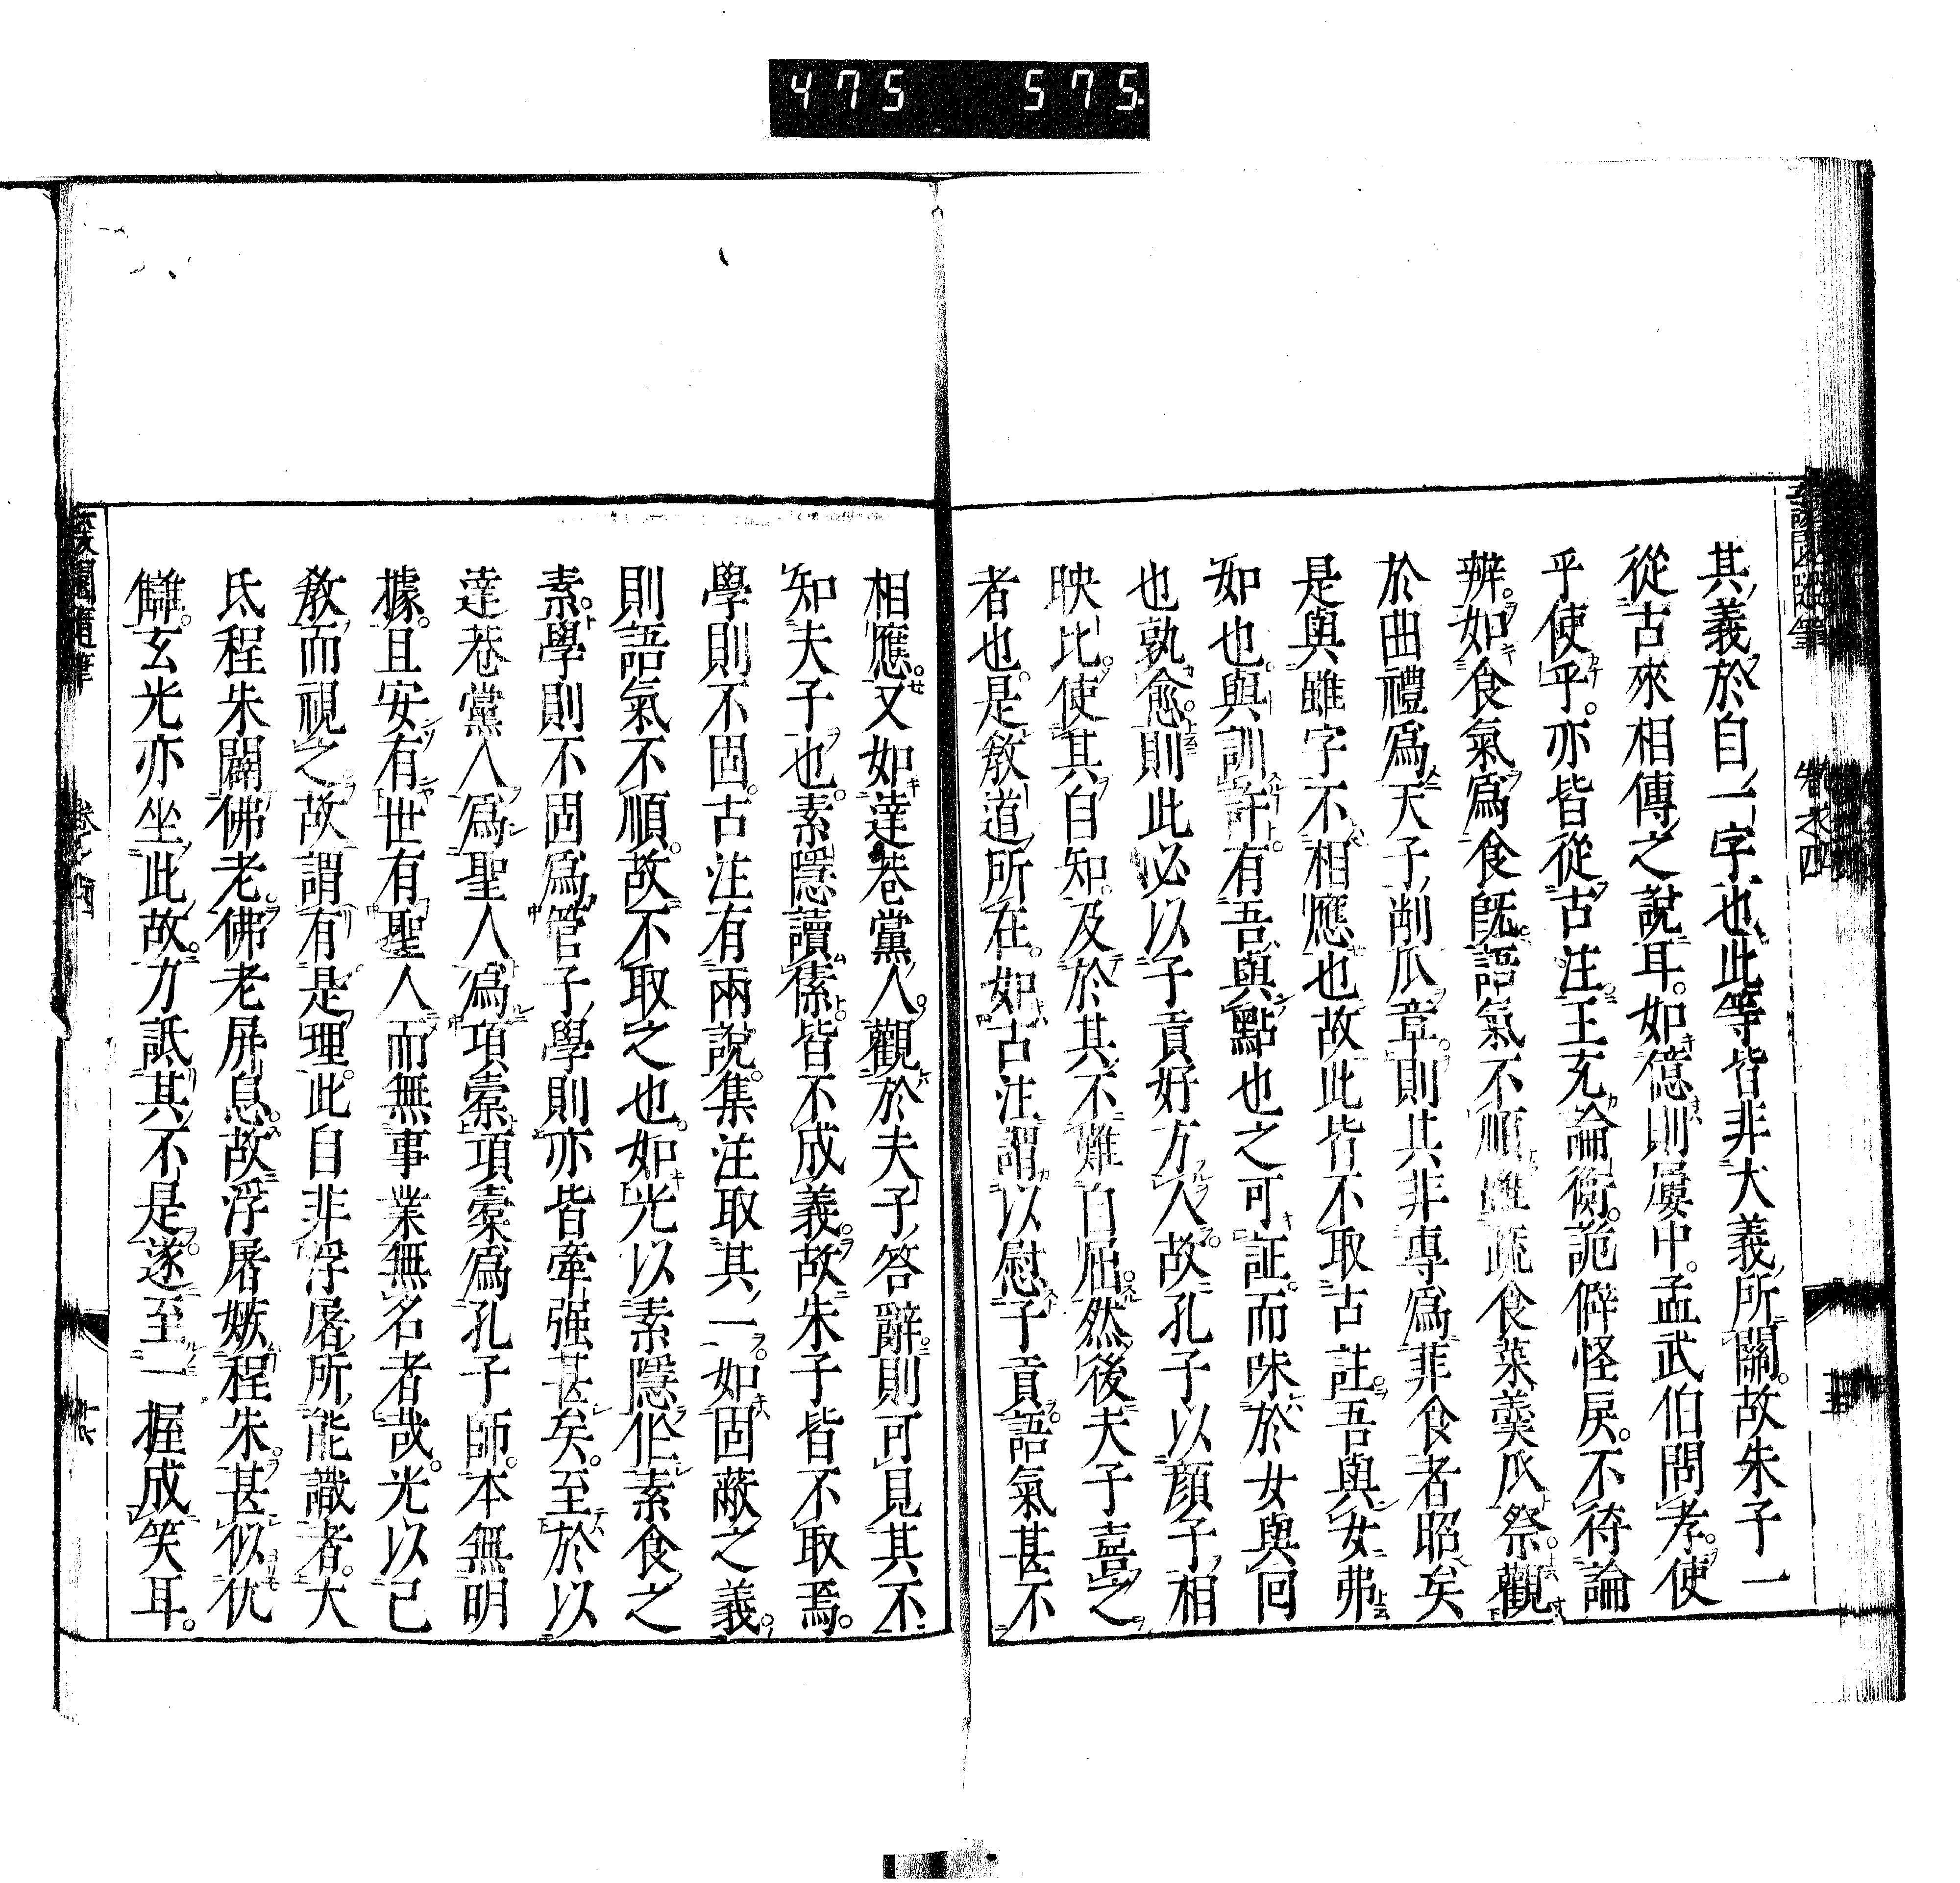 475 575
其義於自一字也此等皆非大義所關故朱子一
從古來相傳之說耳如億則屢中孟武伯問孝使
乎使乎亦皆從古注王充論衡詭僻怪戾不待論
辨如食氣爲食既語氣不順雖疏食菜羹瓜祭觀
於曲禮爲天子削瓜章則其非專爲菲食者昭矣
是與雖字不相應也故此皆不取古註吾與女弗
如也與訓許有吾與點也之可証而味於女與回
也孰愈則此必以子貢好方人故孔子以顏子相
映比使其自知及於其不難自屈然後夫子喜之
者也是教道所在如古注謂以慰子貢語氣甚不
相應又如達巷黨人觀於夫子答辭則可見其不
知夫子也素隱讀傃皆不成義故朱子皆不取焉
學則不固古注有兩說集注取其一如固蔽之義
則語氣不順故不取之也如光以素隱作素食之
素學則不固爲管子學則亦皆牽强甚矣至於以
達巷黨人爲聖人爲項橐項橐爲孔子師本無明
據且安有世有聖人而無事業無名者哉光以己
教而視之故謂有是理此自非浮屠所能識者大
氐程朱闢佛老佛老屏息故浮屠嫉程朱甚似仇
讎玄光亦坐此故力詆其不是遂至一握成笑耳
卷之四